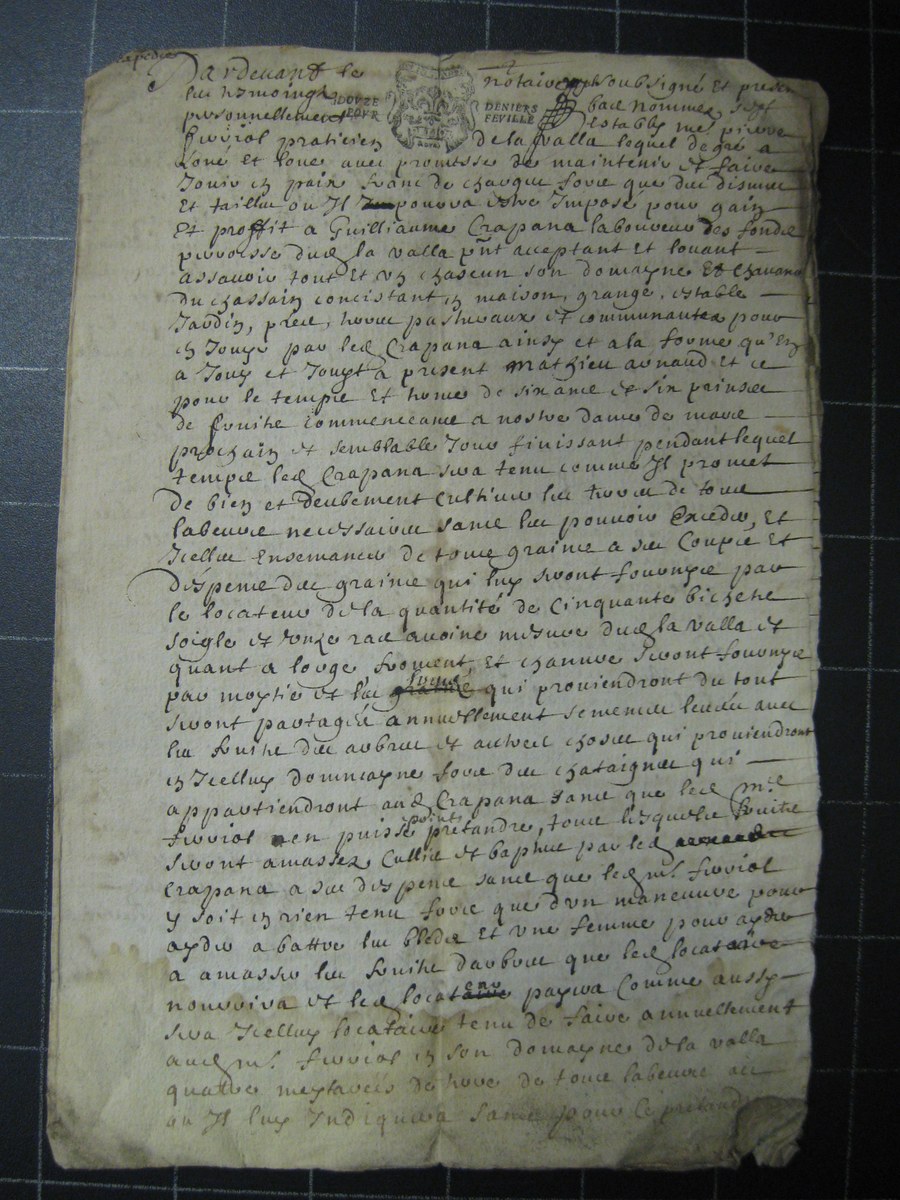 expedie
Pardevant le notaire soubsigné et presen
les tesmoings bas nommes sest
DOUZE DENIERS
POUR FEVILLE
personnellement establis me pierre
friviol praticien de la valla lequel de gré a
loué et loue avec promesse de maintenir et faire
Jouir en paix franc de charque fors que des disme
Et tailles ou Il pourra estre Imposé pour gain
Et proffit a Guilliaume Crapana laboureur des fonds
parroisse dud la valla pnt acceptant et louant
assavoir tout Et un chascun son domayne Et
du chassain concistant en maison, grange, estable
Jardin, pred, terres pasturaux et communautes pour
en Jouyr par led Crapana ainsy et a la forme qu'En
a Jouy et Jouyt a present mathieu arnaud Et ce
pour le temps Et terme de six ans et six prinses
de fruits commenceant a nostre dame de mars
prochain et semblable Jour finissant pendant lequel
temps led Crapana sera tenu comme Il promet
de bien et deubement Cultiver les terres de tous
labeurs necessaires sans les pouvoir Exceder, Et
Icelles Ensemancer de tous grains a ses Coups Et
despens des grains qui luy seront fournys par
le locateur de la quantité de Cinquante bichets
soigle et onze ras avoine mesure dud la valla et
quant a lorge froment, Et chanvre seront fournys
par moytie et les fruits qui proviendront du tout
seront partagés annuellement semences levées avec
les fruits des arbres et aultres choses qui proviendront
en Icelluy dommayne fors des chataignes qui
appartiendront aud Crapana sans que led mr
friviol en puisse points prétandre, tous lesquels fruits
seront amasses Cullis et baptus par led
Crapana a ses despens sans que led mr friviol
y soit en rien tenu fors que d'un maneuvre pour
ayder a battre les bleds Et une femme pour ayder
a amasser les fruits d'arbres que led locataire
nourrira et led locateur payera Comme aussy
sera Icelluy locataire tenu de faire annuellement
aud mr friviol en son domayne de la valla
quatre mestarées de terre de tous labeurs
ou Il luy Indiquera sans pour ce prétand